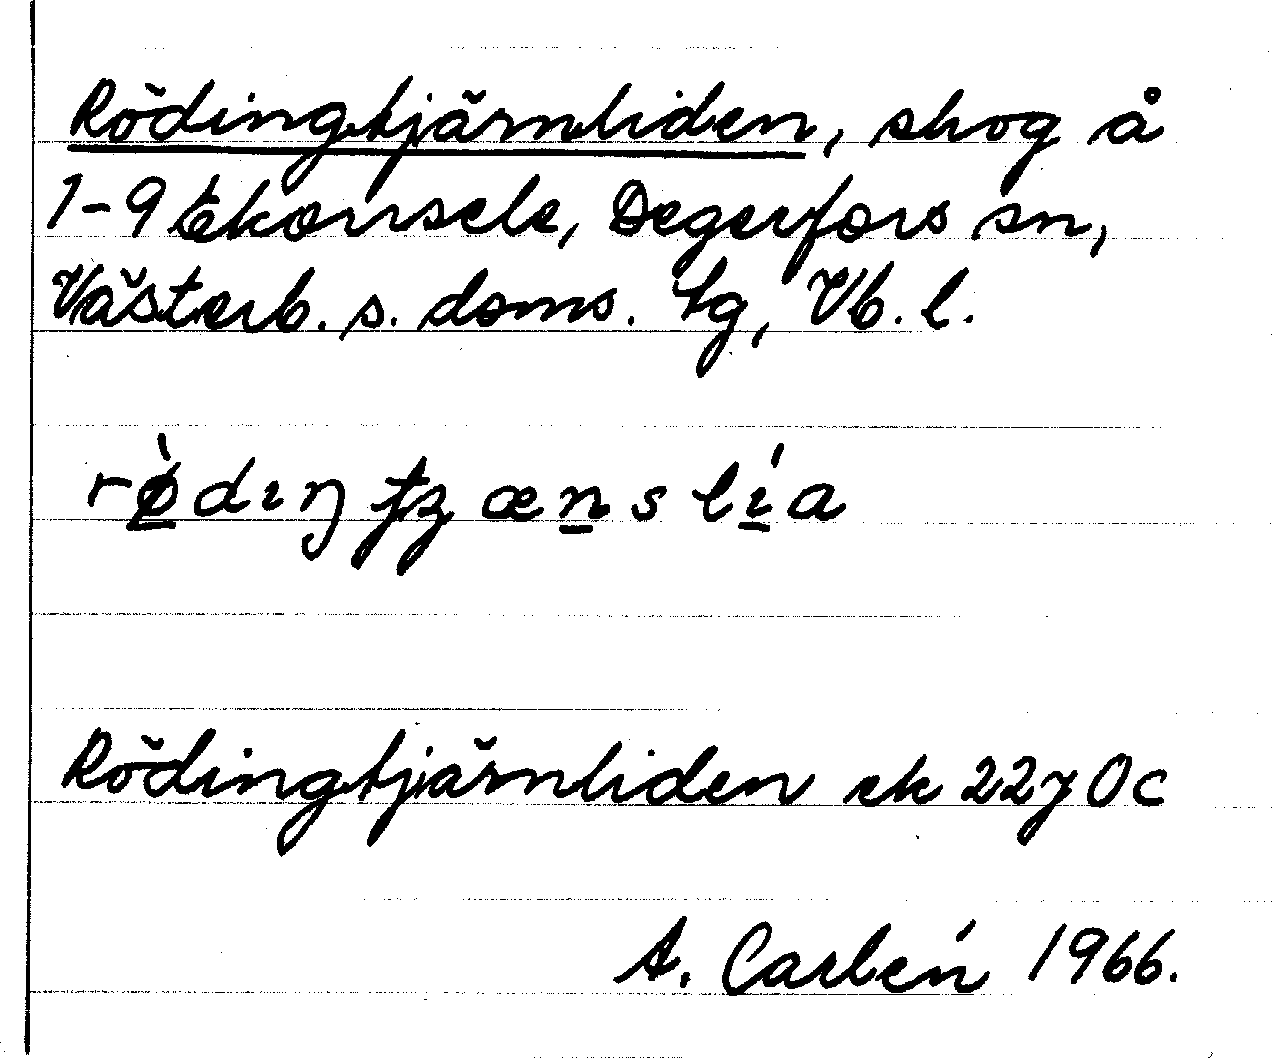 Rödingtjärnliden, skog å
1-9 Ekorrsele, Degerfors sn,
Västerb. s. doms. tg, Vb. l.
Rödingtjärnliden ek 22J 0c
A. Carlén 1966.